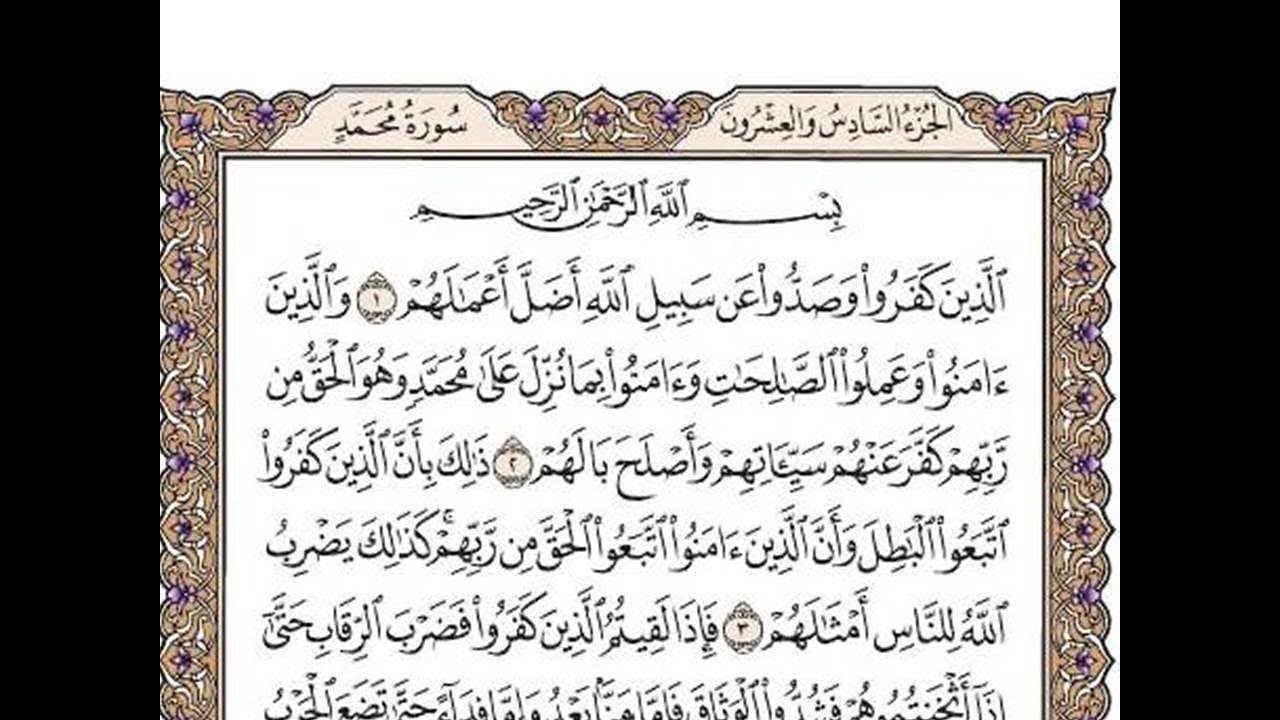 الجُزْءُ السَّادِسُ وَالعِشْرُونَ
سُورَةُ مُحَمَّدٍ
بِسْمِ ٱللَّهِ ٱلرَّحْمَٰنِ ٱلرَّحِيمِ
ٱلَّذِينَ كَفَرُوا۟ وَصَدُّوا۟ عَن سَبِيلِ ٱللَّهِ أَضَلَّ أَعْمَٰلَهُمْ ١ وَٱلَّذِينَ
ءَامَنُوا۟ وَعَمِلُوا۟ ٱلصَّٰلِحَٰتِ وَءَامَنُوا۟ بِمَا نُزِّلَ عَلَىٰ مُحَمَّدٍ وَهُوَ ٱلْحَقُّ مِن
رَّبِّهِمْ كَفَّرَ عَنْهُمْ سَيِّـَٔاتِهِمْ وَأَصْلَحَ بَالَهُمْ ٢ ذَٰلِكَ بِأَنَّ ٱلَّذِينَ كَفَرُوا۟
ٱتَّبَعُوا۟ ٱلْبَٰطِلَ وَأَنَّ ٱلَّذِينَ ءَامَنُوا۟ ٱتَّبَعُوا۟ ٱلْحَقَّ مِن رَّبِّهِمْ ۚ كَذَٰلِكَ يَضْرِبُ
ٱللَّهُ لِلنَّاسِ أَمْثَٰلَهُمْ ٣ فَإِذَا لَقِيتُمُ ٱلَّذِينَ كَفَرُوا۟ فَضَرْبَ ٱلرِّقَابِ حَتَّىٰٓ
إِذَآ أَثْخَنتُمُوهُمْ فَشُدُّوا۟ ٱلْوَثَاقَ فَإِمَّا مَنًّۢا بَعْدُ وَإِمَّا فِدَآءً حَتَّىٰ تَضَعَ ٱلْحَرْبُ